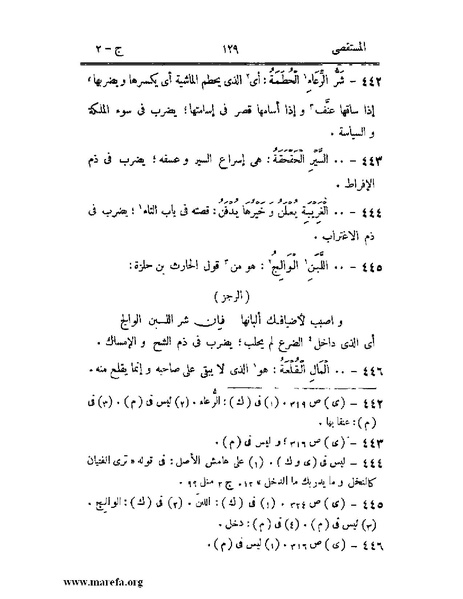 المستقصى ١٢٩ ج - ٢
٤٤٢ - شَرُّ الرِّعَاءِ¹ الْحُطَمَةُ : أى² الذى يحطم الماشية أى يكسرها ويضربها ،
إذا ساقها عنَّف³ و إذا أسامها قصر فى إسامتها ؛ يضرب فى سوء الملكة
و السياسة .
٤٤٣ - ٠٠ السَّيْرِ الْحَقْحَقَةُ : هى إسراع السير و عسفه ؛ يضرب فى ذم
الإفراط .
٤٤٤ - ٠٠ الْغَرِيبَةِ يُعْلَنُ وَ خَيْرُهَا يُدْفَنُ : قصته فى باب التاء¹ ؛ يضرب فى
ذم الاغتراب .
٤٤٥ - ٠٠ اللَّبَنِ¹ الْوَالِجُ² : هو من³ قول الحارث بن حلزة :
( الرجز )
و اصبب لأضيافك ألبانها فإن شر اللبن الوالج
أى الذى داخل⁴ الضرع لم يحلب ؛ يضرب فى ذم الشح و الإمساك .
٤٤٦ - ٠٠ الْمَالِ الْقُلْعَةُ : هو¹ الذى لا يبقى على صاحبه و إنما يقلع منه .
٤٤٢ - ( ى ) ص ٣١٩ ٠ (١) فى ( ك ) : الرُّعاه . (٢) ليس فى ( م ) . (٣) فى
( م ) : عنفا بها .
٤٤٣ - ( ى ) ص ٣١٦ و ليس فى ( م ) .
٤٤٤ - ليس فى ( ى و ك ) . (١) على هامش الأصل : فى قوله « ترى الفتيان
كالنخل و ما يدريك ما الدخل » ١٢ . ج ٢ مثل ٩٩ .
٤٤٥ - ( ى ) ص ٣٢٤ ٠ (١) فى ( ك ) : اللبنُ . (٢) فى ( ك ) : الوالِج .
(٣) ليس فى ( م ) . (٤) فى ( م ) : دخل .
٤٤٦ - ( ى ) ص ٣١٦ ٠ (١) ليس فى ( م ) .
www.marefa.org